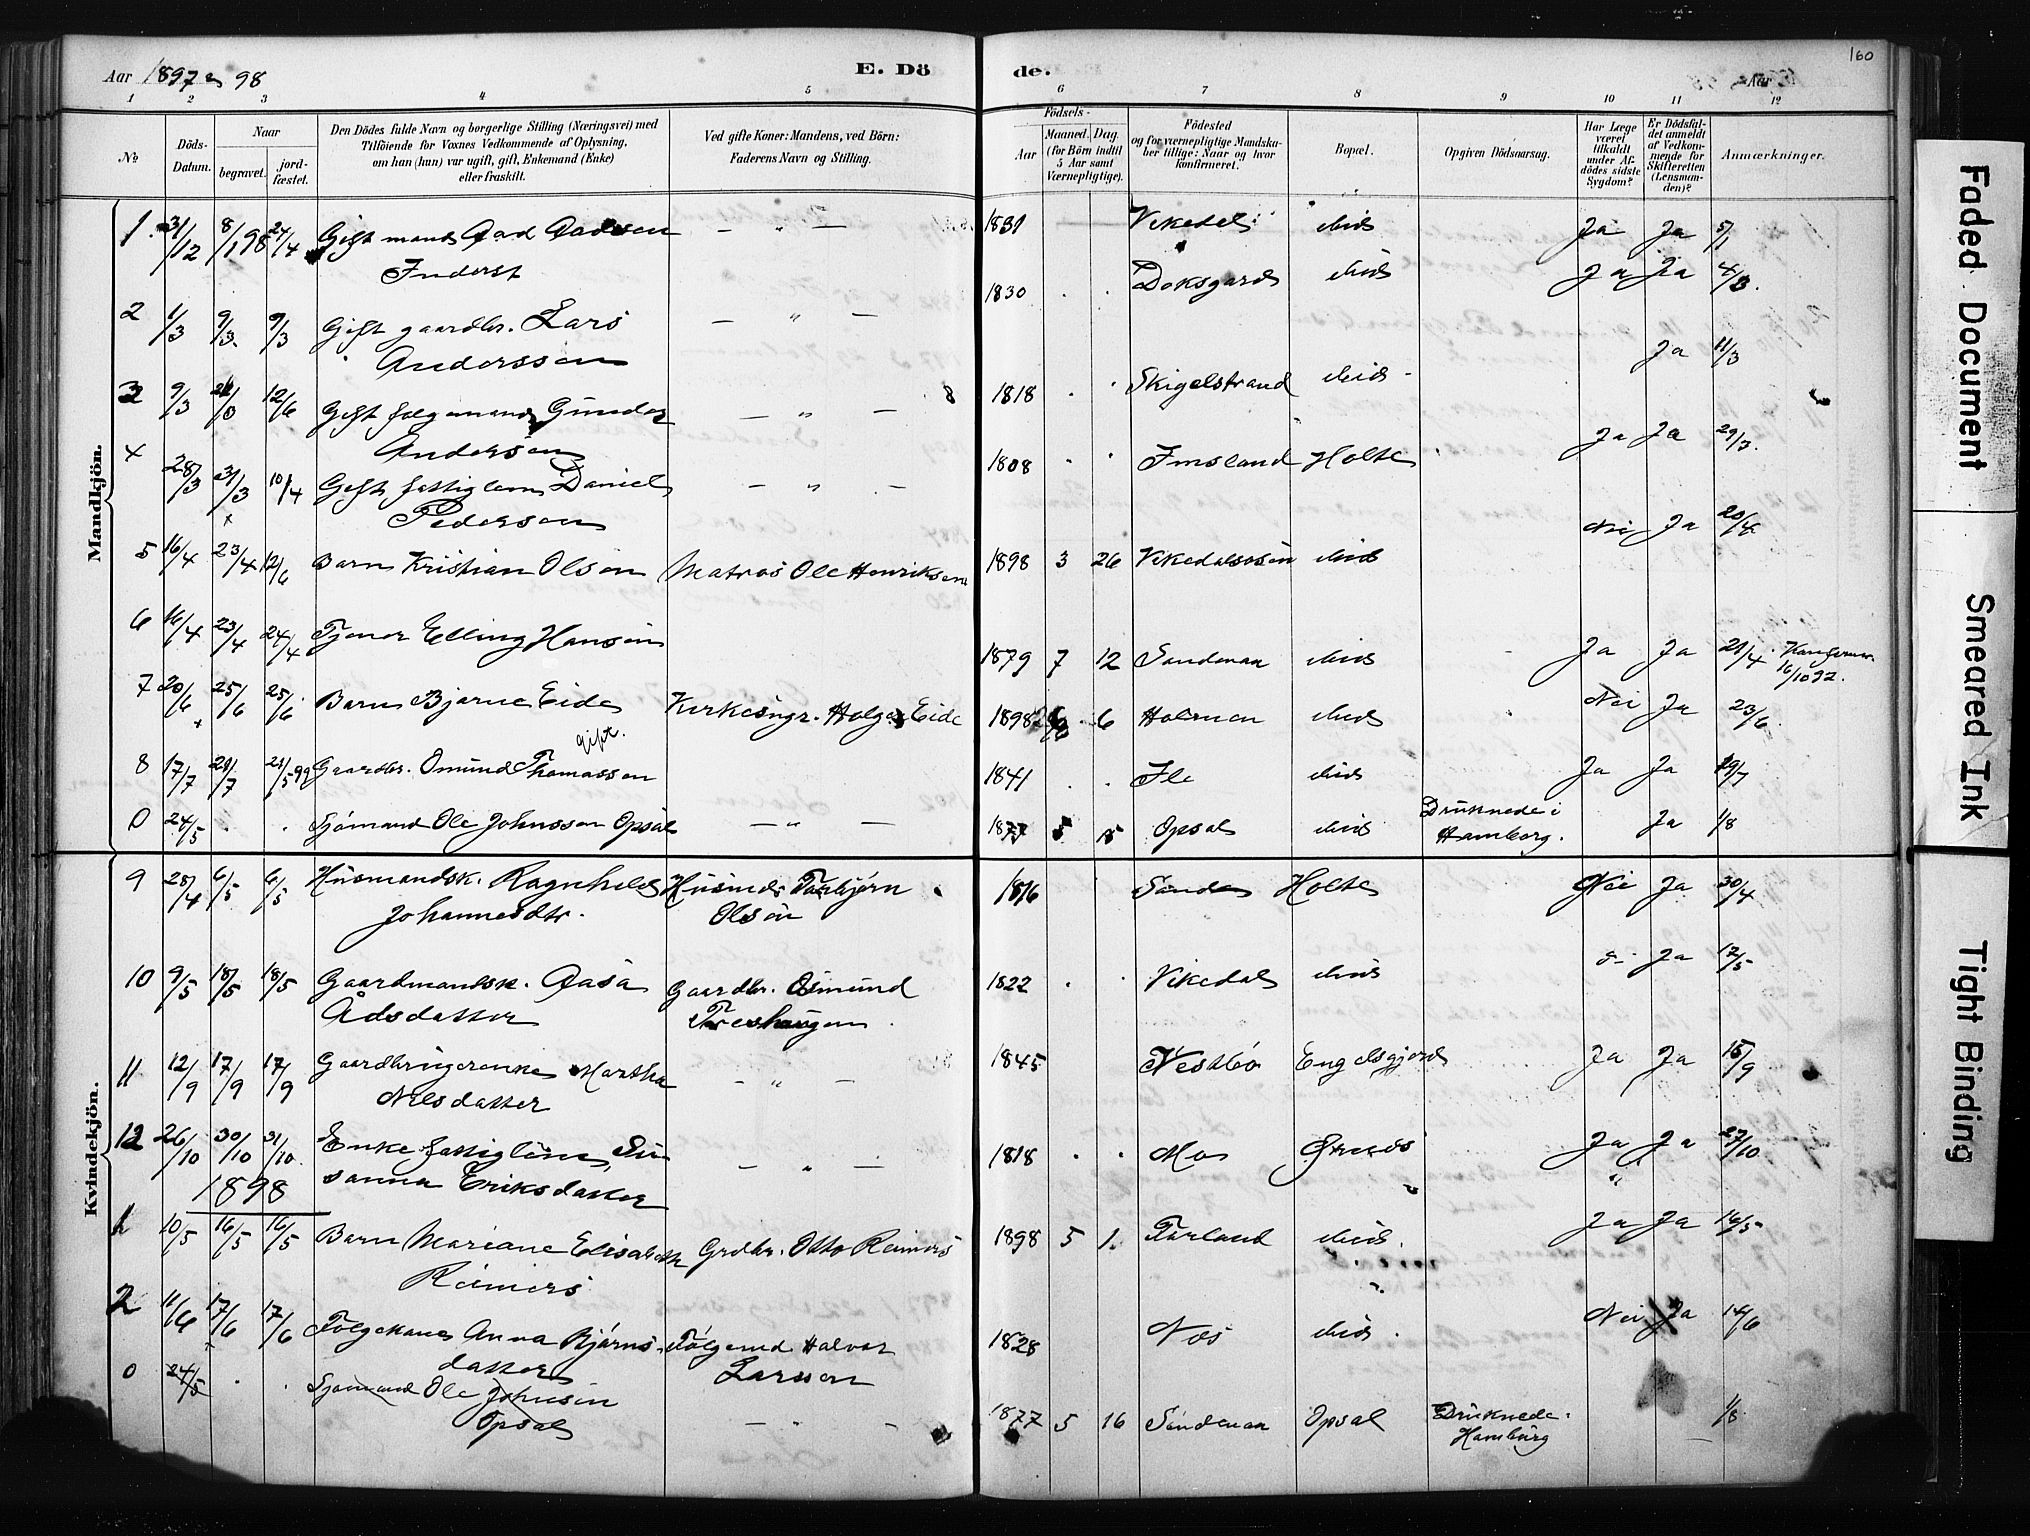 160
Aar 1897 og 98
E. Döde.
Aar
1 2 3 4 5 6 7 8 9 10 11 12
No
Döds-Datum.
Naar
begravet.
jord-fæstet.
Den Dödes fulde Navn og borgerlige Stilling (Næringsvei) med
Tilföiende for Voxnes Vedkommende af Oplysning,
om han (hun) var ugift, gift, Enkemand (Enke)
eller fraskilt.
Ved gifte Koner: Mandens, ved Börn:
Faderens Navn og Stilling.
Födsels-
Aar
Maaned. Dag.
(for Börn indtil
5 Aar samt
Værnepligtige).
Födested
og for værnepligtige Mandska-
ber tillige: Naar og hvor
konfirmeret.
Bopæl.
Opgiven Dödsaarsag.
Har Læge
været
tilkaldt
under Af-
dödes sidste
Sygdom?
Er Dödsfal-
det anmeldt
af Vedkom-
mende for
Skifteretten
(Lensman-
den)?
Anmærkninger.
Mandkjön.
1 31/12 8/1 98 24/4 Gift mand Aad Aadsen — " — 1831 Vikedal ibid Ja Ja 5/1
Inderst
2 1/3 9/3 9/3 Gift gaardbr. Lars — " — 1830 ibid Ja Ja 4/3.
Anderssen
3 9/3 12/6 Gift Gunder — " — 1818 Skigelstrand ibid Ja 11/3
Andersen
4 28/3 31/3 10/4 Gift fattiglem Daniel — " — 1808 Imsland Holte Ja Ja 29/3.
Pedersen
5 16/4 23/4 12/6 Barn Kristian Olsen Matros Ole Henriksen 1898 3 26 Vikedalsosen ibid Nei Ja 20/4
6 16/4 23/4 24/4 Tjener Elling Hansen 1879 7 12 Sandenaa ibid Ja Ja 21/4
16/10 92.
7 20/6 25/6 25/6 Barn Bjarne Eide Kirkesngr. Holger Eide 1898 6 Holmen ibid Nei Ja 23/6
gift.
8 17/7 21/5 99 Gaardbr. Omund Thomassen 1841 Ile ibid Ja Ja 19/7
0 24/5 Sjömand Ole Johnssen Opsal — " — 1877 5 15 Opsal ibid Druknede i Ja 1/8
Hamborg.
Kvindekjön.
9 28/4 6/5 6/5 Husmandsk. Ragnhild Husmd. Torbjørn 1816 Sande Holte Nei Ja 30/4
Johannesdtr. Olsen
10 9/5 18/5 18/5 Gaardmandsk. Aasa Gaardbr. Osmund 1822 Vikedal ibid Ja 12/5
Ådsdatter
11 12/9 17/9 17/9 Gaardbrugerenke Martha — " — 1845 Vestbö Engelsgjerd Ja Ja 15/9
Nilsdatter
12 26/10 30/10 31/10 Enke fattiglem Su- — " — 1818 Mo Ja Ja 27/10
sanna Eriksdatter
1898
1 10/5 16/5 16/5 Barn Mariane Elisabeth Grdbr. Otto Reimers 1898 5 1. Farland ibid. Ja Ja 16/5
Reimers
2 11/6 17/6 17/6 Følgekone Anna Bjørns- Følgemd Halvor 1828 Nes ibid. Nei Ja 14/6
datter Larssen
0 24/5 Sjömand Ole Johnsen — " — 1877 5 16 Sandenaa Opsal Druknede 1/8
Opsal Hamburg
Faded Document
Smeared Ink
Tight Binding